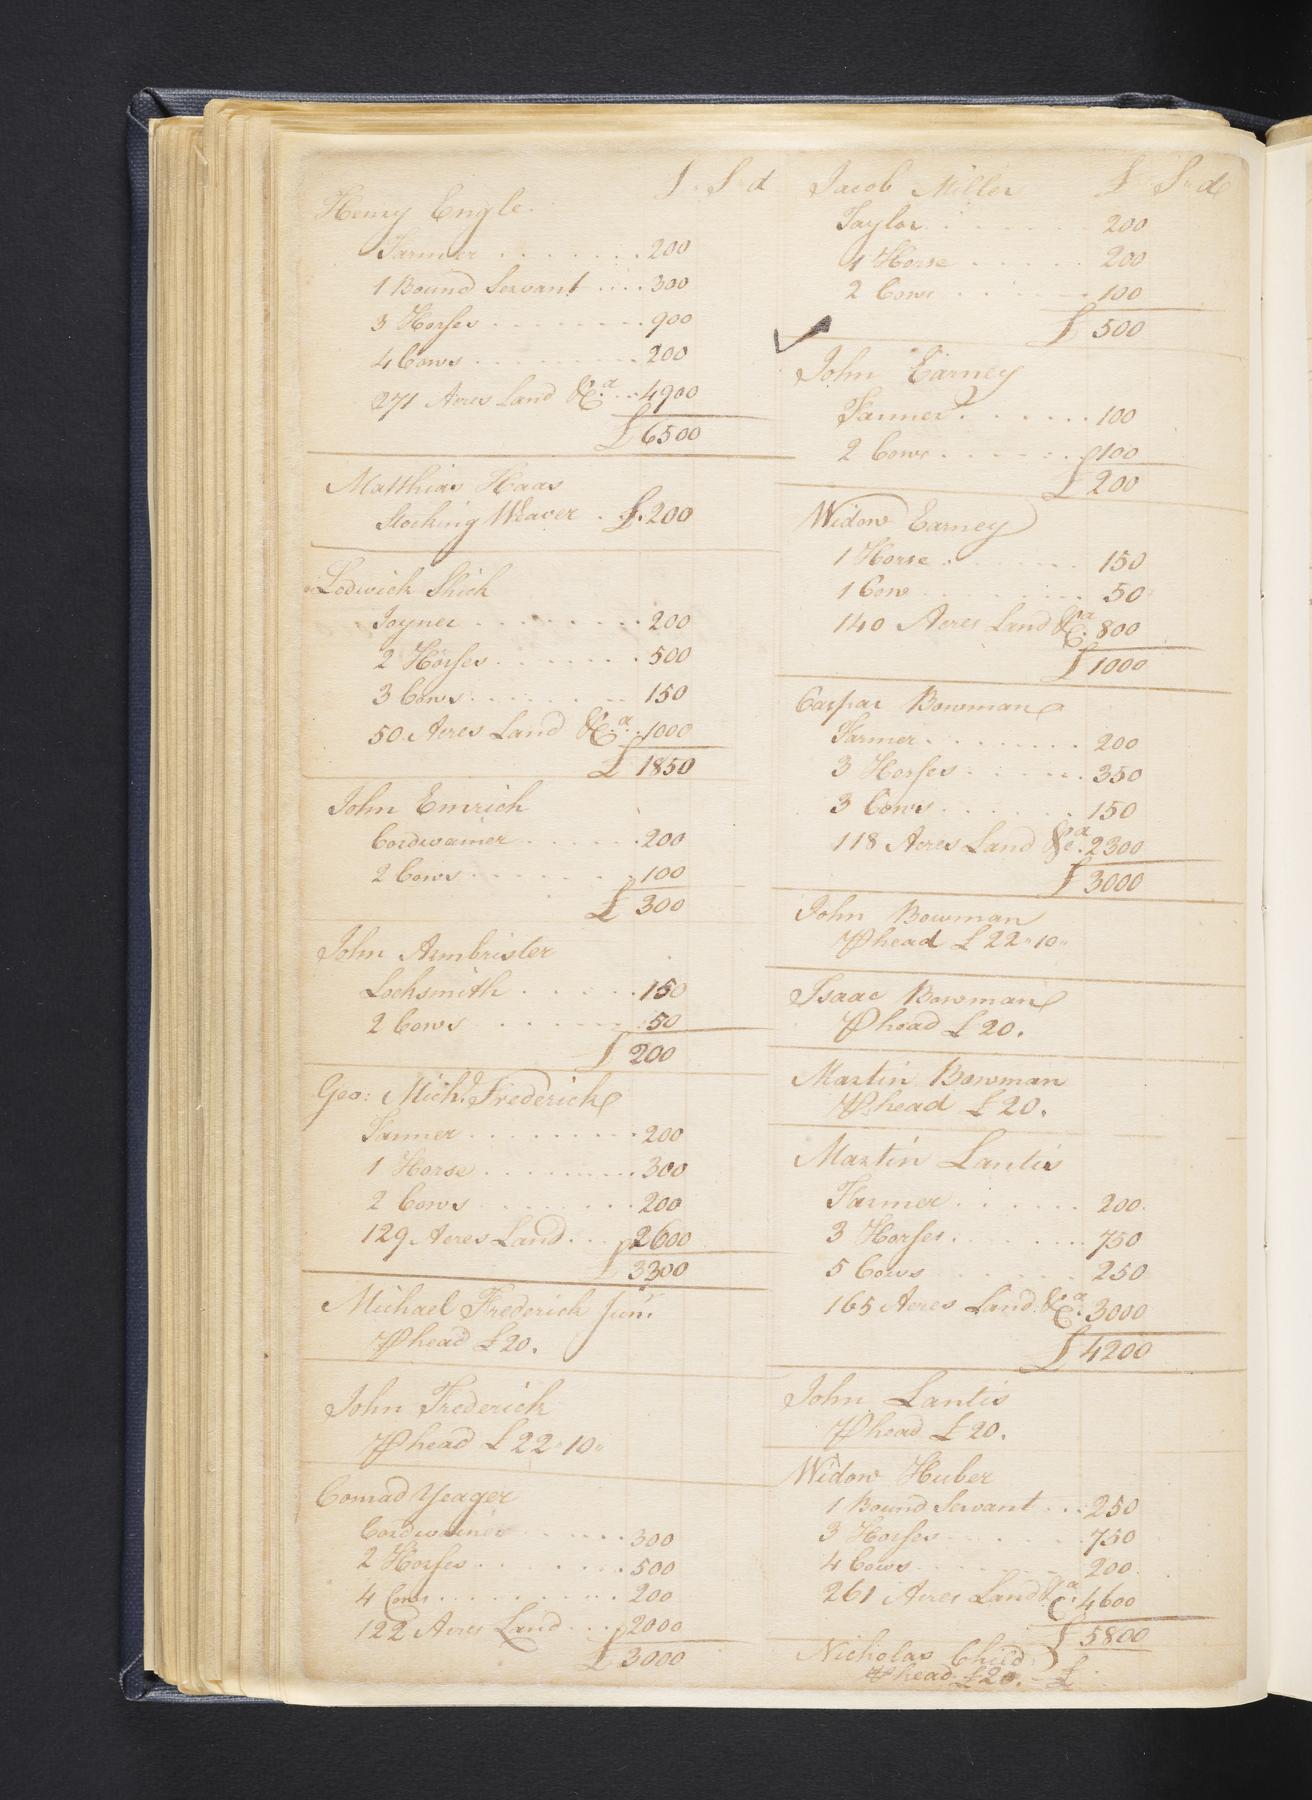 £ S d
Henry Engle.
Farmer . . . . . . . 200
1 Bound Servant . . . . 300
3 Horses . . . . . . . . 900
4 Cows . . . . . . . . 200
271 Acres Land &Ca. . . 4900
£ 6500
Matthias Haas
Stocking Weaver . £. 200
Lodwick Shick
Joyner . . . . . . . . 200
2 Horses . . . . . . . 500
3 Cows . . . . . . . 150
50 Acres Land &Ca. . 1000
£ 1850
John Emrich
Cordwainer . . . . . . 200
2 Cows . . . . . . . 100
£ 300
John Armbrister
Locksmith . . . . . 150
2 Cows . . . . . . 50
£ 200
Geo: Michl. Frederick
Tanner . . . . . . . . . 200
1 Horse . . . . . . . . . 300
2 Cows . . . . . . . . 200
129 Acres Land . . . 2600
£ 3300
Michael Frederick Junr.
⅌ head £20.
John Frederick
⅌ head £22"10"
Conrad Yeager
Cordwainer . . . . . . 300
2 Horses . . . . . . . 500
4 Cows . . . . . . . . . . 200
122 Acres Land . . . 2000
£ 3000
Jacob Miller £ S" d
Taylor . . . . . . . 200
1 Horse . . . . . 200
2 Cows . . . . . 100
£ 500
John Earney
Tanner . . . . . . 100
2 Cows . . . . . . 100
£ 200
Widow Earney
1 Horse . . . . . . . 150
1 Cow . . . . . . . 50
140 Acres Land &Ca. 800
£ 1000
Caspar Bowman
Farmer . . . . . . . . 200
3 Horses . . . . . . 350
3 Cows . . . . . . 150
118 Acres Land &Ca. 2300
£ 3000
John Bowman
⅌ head £22"10"
Isaac Bowman
⅌ head £20.
Martin Bowman
⅌ head £20.
Martin Lantis
Farmer . . . . . . 200
3 Horses . . . . . . . 750
5 Cows . . . . . . 250
165 Acres Land &Ca. 3000
£ 4200
John Lantis
⅌ head £20.
Widow Huber
1 Bound Servant . . . 250
3 Horses . . . . . . . 750
4 Cows . . . . . . . 200
261 Acres Land &Ca. 4600
£ 5800
Nicholas Child
⅌ head £20. - £